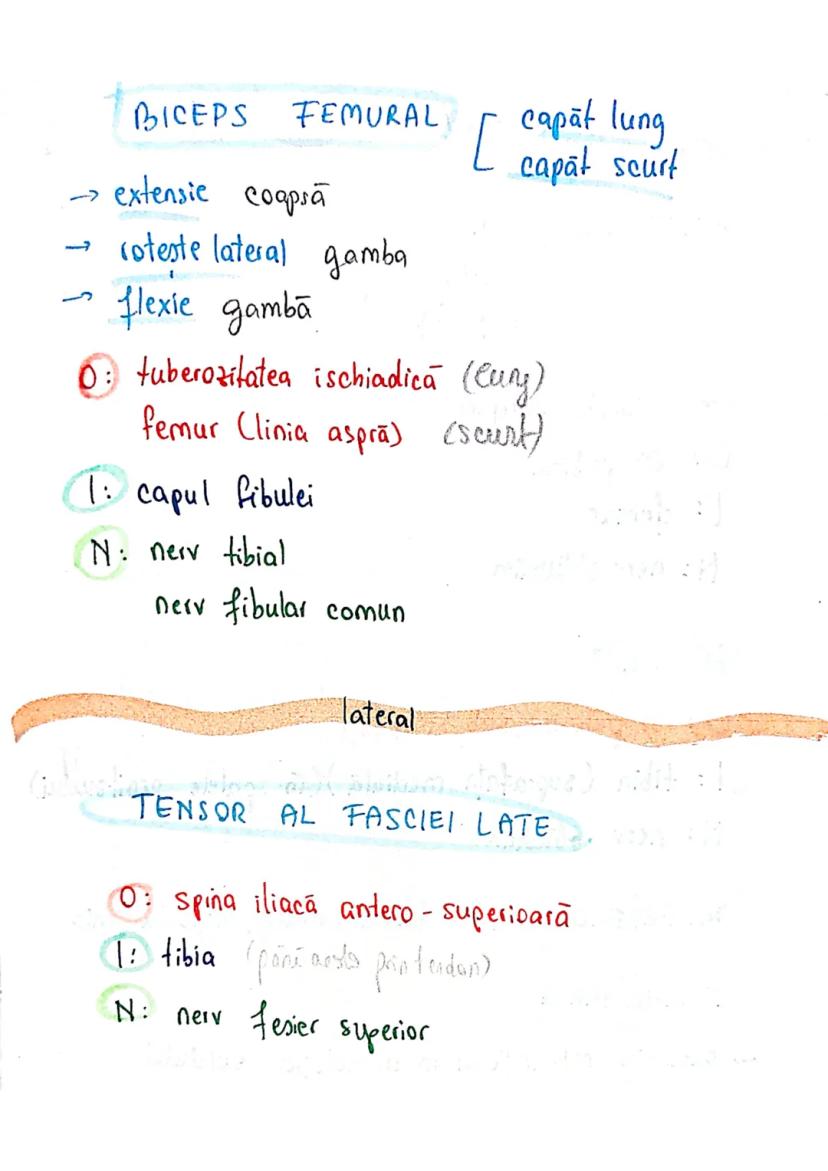 BICEPS FEMURAL
capăt lung
capăt scurt
→ extensie coapsă
→ rotește lateral gamba
→ flexie gambă
O: tuberozitatea ischiadică (lung)
femur (linia aspră) (scurt)
I: capul fibulei
N: nerv tibial
nerv fibular comun
lateral
TENSOR AL FASCIEI LATE
O: spina iliacă antero-superioară
I: tibia (până prin tendon)
N: nerv fesier superior